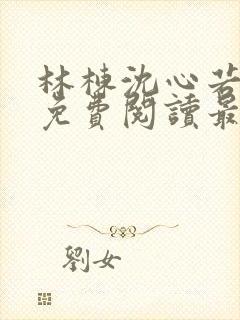 林棟沈心若
免費閱讀最
劉女